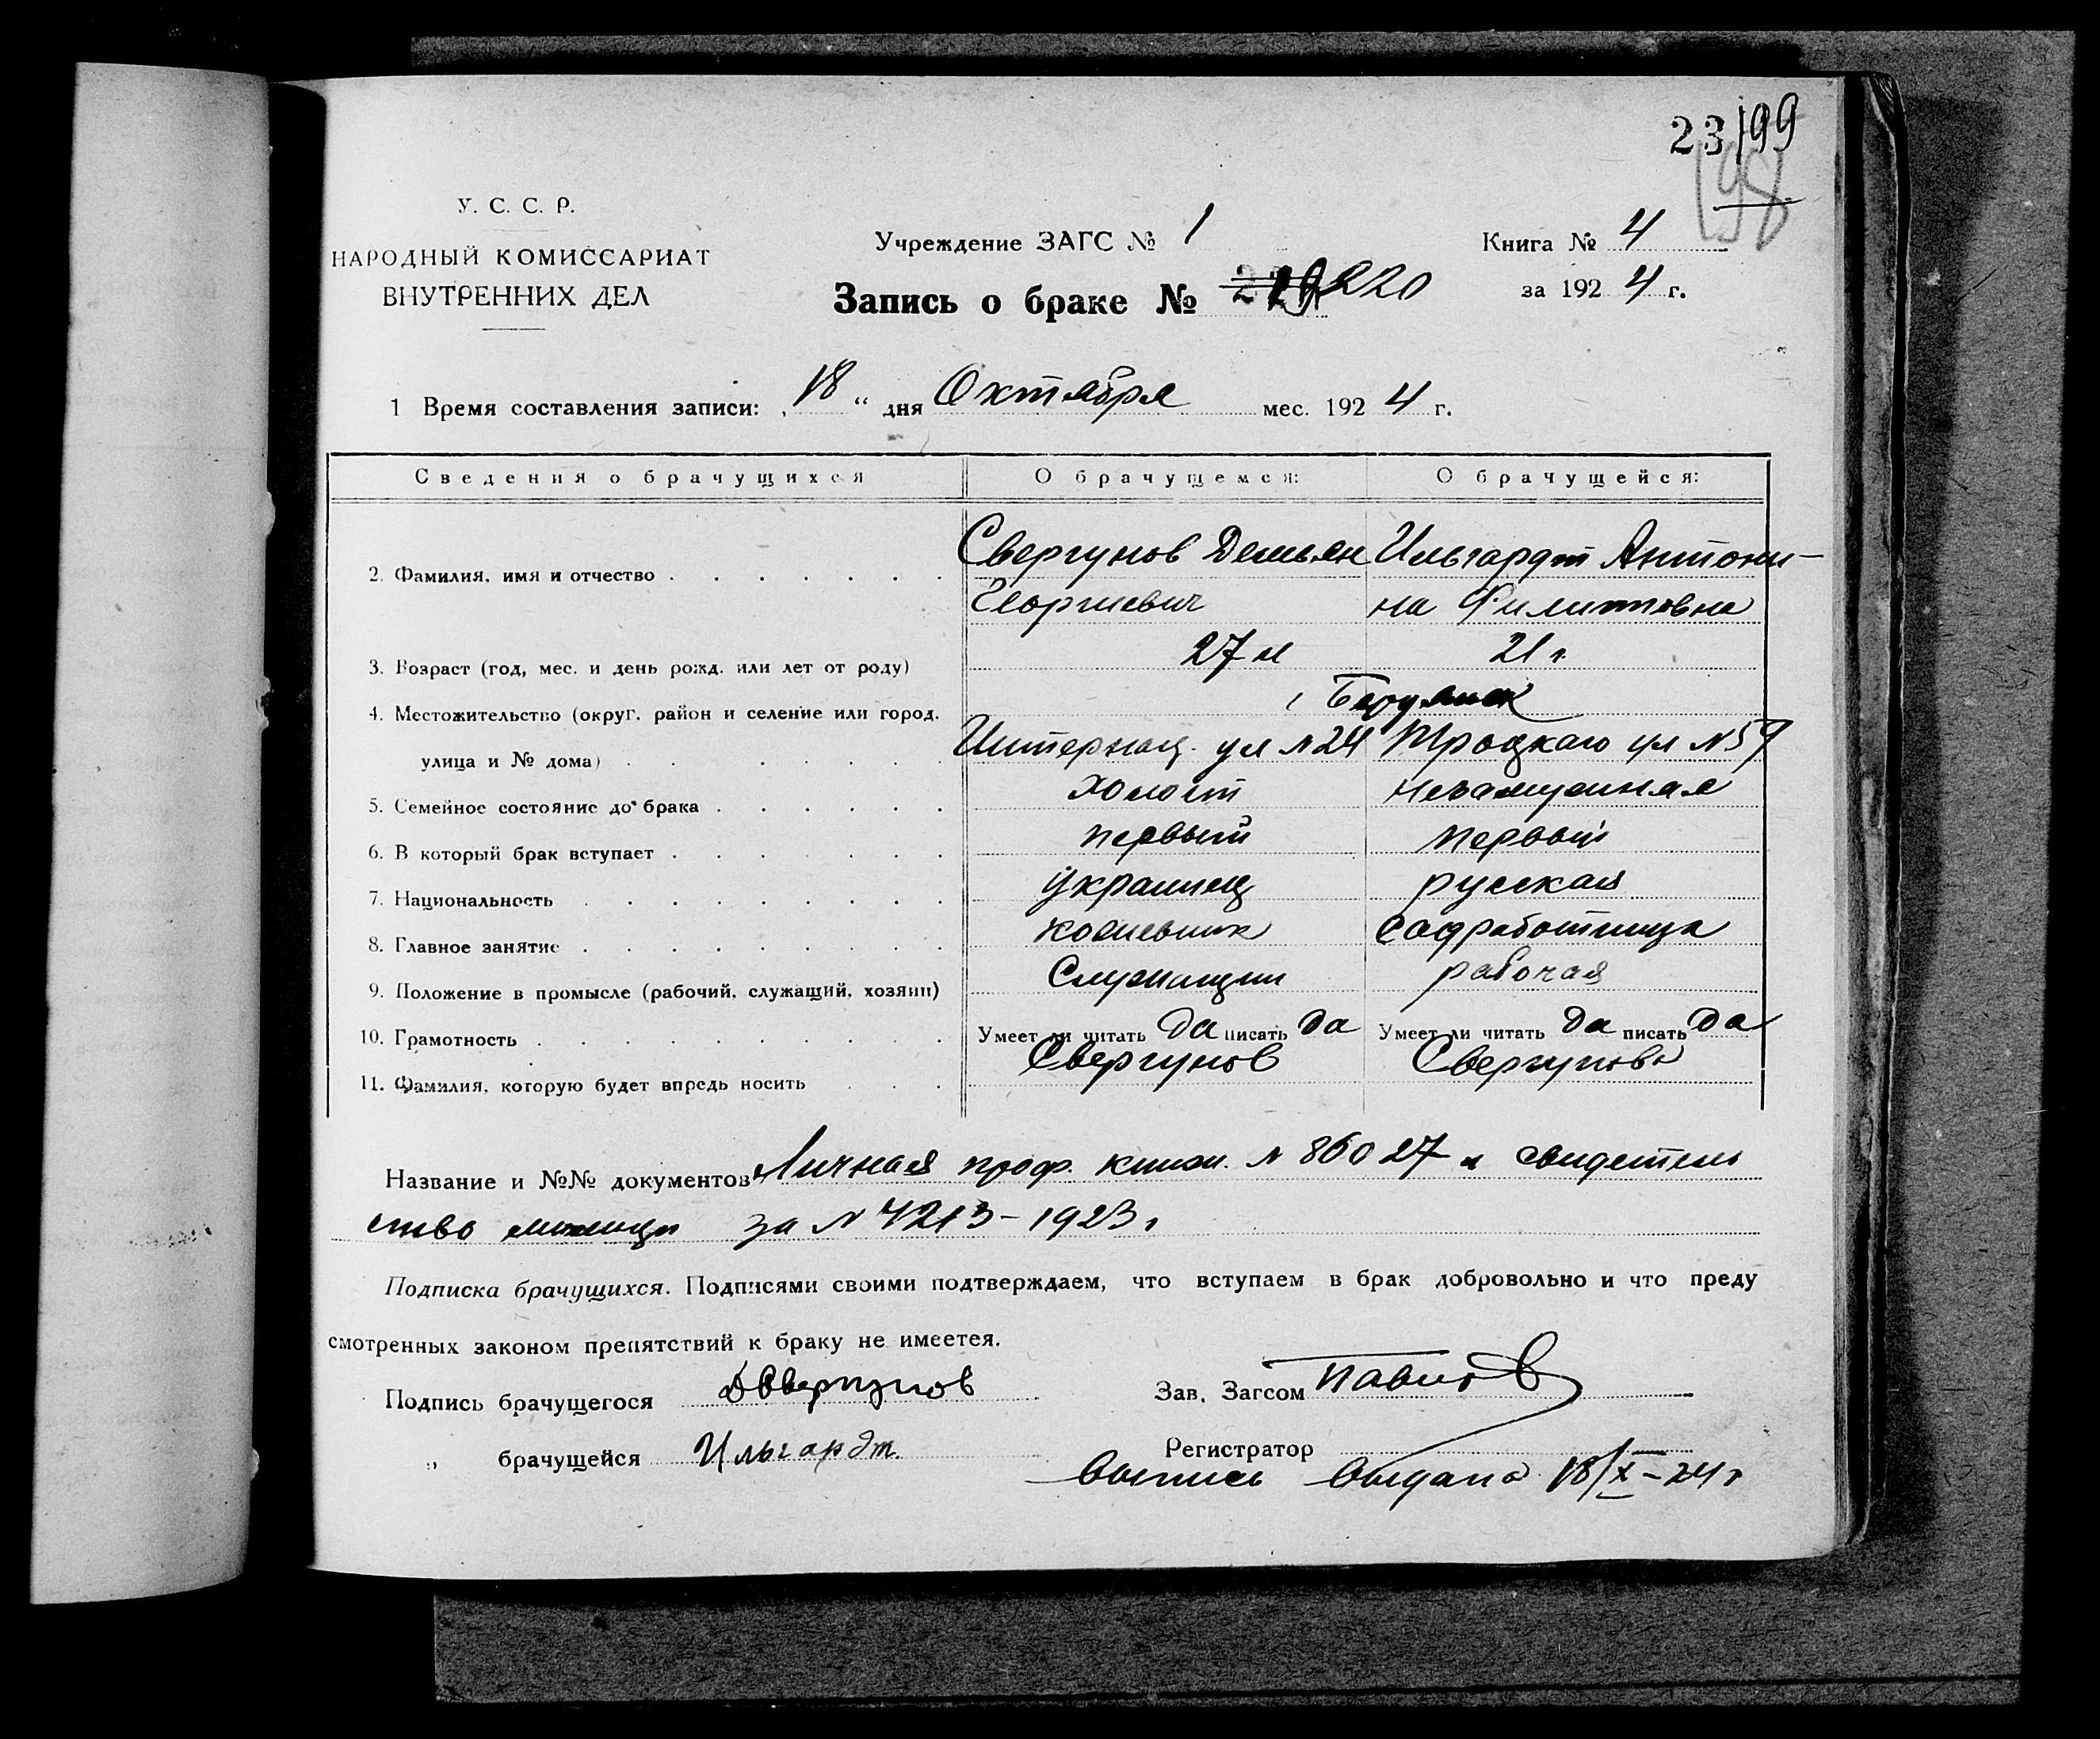 23/99
198
У. С. С. Р.
НАРОДНЫЙ КОМИССАРИАТ
ВНУТРЕННИХ ДЕЛ
Учреждение ЗАГС № 1
Книга № 4
Запись о браке № 220
за 1924 г.
1 Время составления записи: „18“ дня Октября мес. 1924 г.
Сведения о брачущихся О брачущемся: О брачущейся:
2. Фамилия, имя и отчество Свергунов Демьян Ильгардт Антони-
Георгиевич на Филиповна
3. Возраст (год, мес. и день рожд. или лет от роду) 27 л 21 г.
4. Местожительство (округ, район и селение или город, г Бердянск
улица и № дома) Интернац. ул №24 Троцкаго ул №59
5. Семейное состояние до брака Холост незамужняя
6. В который брак вступает первый первый
7. Национальность украинец русская
8. Главное занятие
9. Положение в промысле (рабочий, служащий, хозяин) Служащий рабочая
10. Грамотность Умеет ли читать да писать да Умеет ли читать да писать да
11. Фамилия, которую будет впредь носить Свергунов Свергунова
Название и №№ документов Личная проф. книж. № 86027 и свидетель
ство милиции за № 4213 – 1923 г
Подписка брачущихся. Подписями своими подтверждаем, что вступаем в брак добровольно и что преду
смотренных законом препятствий к браку не имеется.
Подпись брачущегося ДСвергунов Зав. Загсом Павлов
„ брачущейся Ильгардт. Регистратор
Выпись выдана 18/X – 24 г